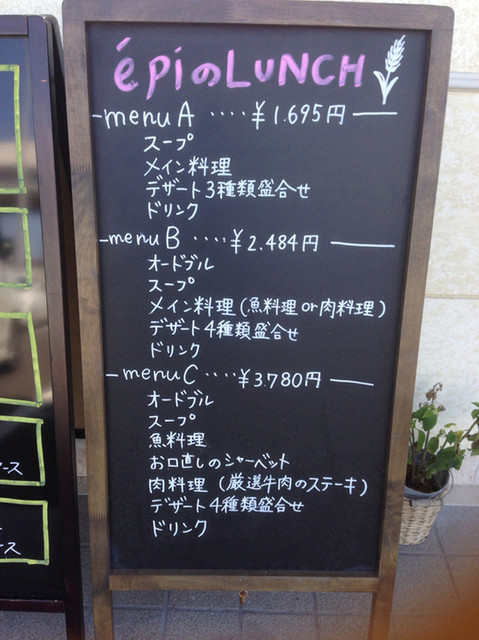 épiのLUNCH
-menu A ････¥1.695円 —
スープ
メイン料理
デザート3種類盛合せ
ドリンク
-menu B ････¥2.484円 —
オードブル
スープ
メイン料理(魚料理or肉料理)
デザート4種類盛合せ
ドリンク
-menu C ････¥3.780円 —
オードブル
スープ
魚料理
お口直しのシャーベット
肉料理 (厳選牛肉のステーキ)
デザート4種類盛合せ
ドリンク
ース
ース